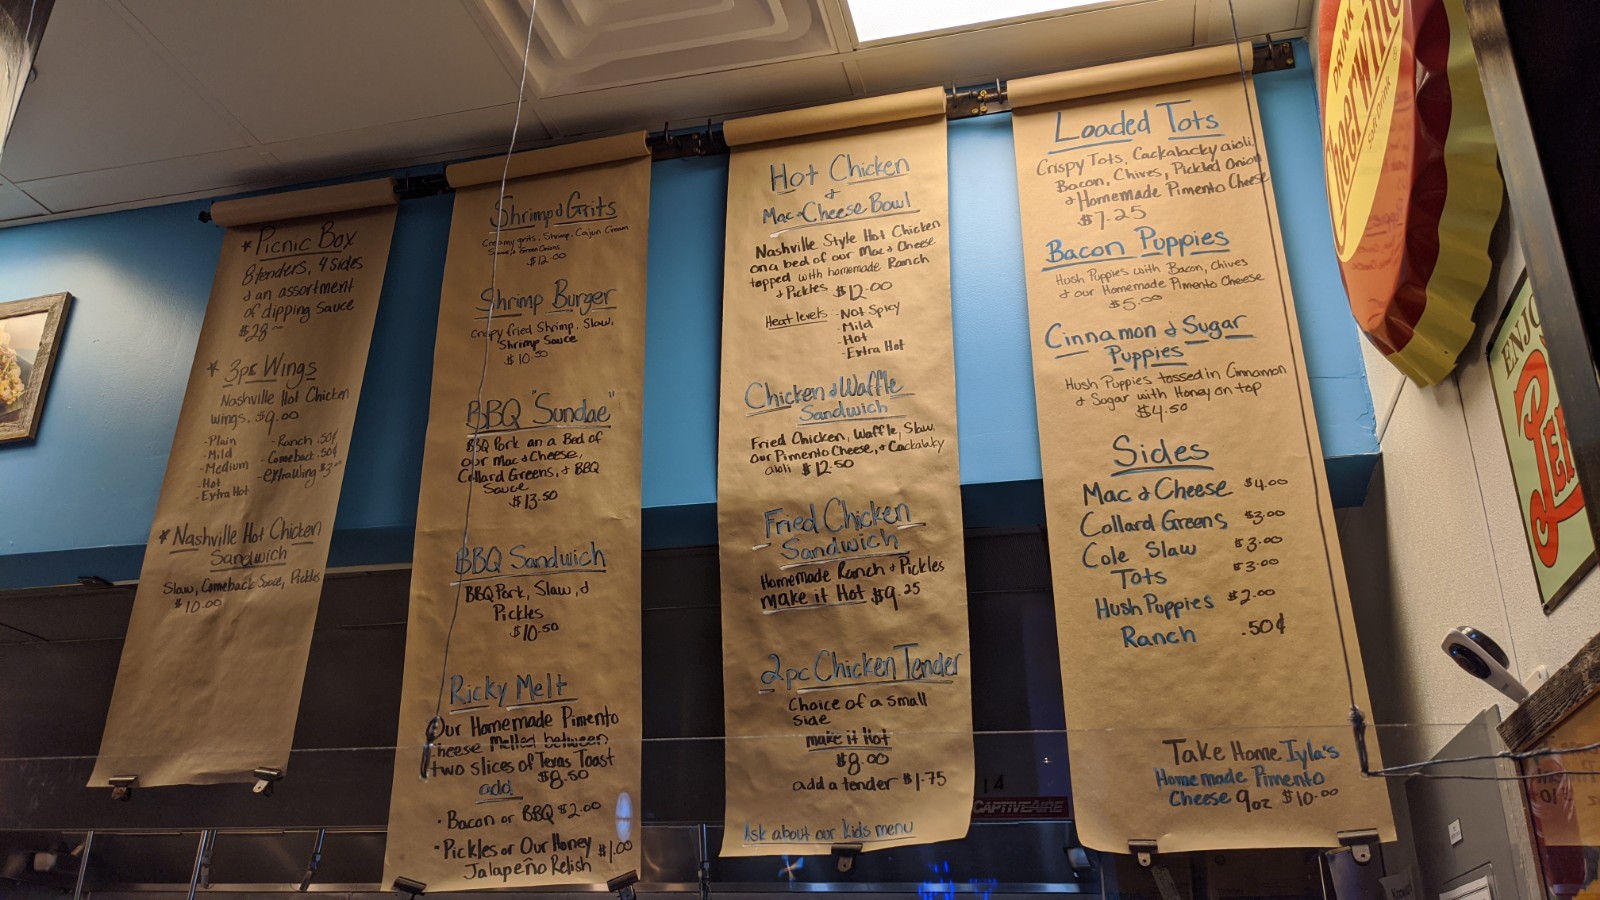 * Picnic Box
8 tenders, 4 sides
& an assortment
of dipping sauce
$28.00
* 3pc Wings
Nashville Hot Chicken
wings. $9.00
-Plain
-Mild
-Medium
-Hot
-Extra Hot
-Ranch .50¢
-Comeback .50¢
-extra wing $3.00
* Nashville Hot Chicken
Sandwich
Slaw, Comeback Sauce, Pickles
$10.00
Shrimp & Grits
Creamy grits, Shrimp, Cajun Cream
Sauce, Green Onions
$12.00
Shrimp Burger
Crispy fried Shrimp, Slaw,
Shrimp Sauce
$10.50
BBQ "Sundae"
BBQ Pork an a Bed of
our Mac & Cheese,
Collard Greens, & BBQ
Sauce
$13.50
BBQ Sandwich
BBQ Pork, Slaw, &
Pickles
$10.50
Ricky Melt
Our Homemade Pimento
Cheese Melted between
two slices of Texas Toast
$8.50
add
• Bacon or BBQ $2.00
• Pickles or Our Honey
Jalapeño Relish $1.00
Hot Chicken
&
Mac & Cheese Bowl
Nashville Style Hot Chicken
on a bed of our Mac & Cheese
topped with homemade Ranch
& Pickles $12.00
Heat levels -Not Spicy
-Mild
-Hot
-Extra Hot
Chicken & Waffle
Sandwich
Fried Chicken, Waffle, Slaw,
Our Pimento Cheese, & Cackalacky
aioli $12.50
Fried Chicken
Sandwich
Homemade Ranch & Pickles
make it Hot $9.25
2pc Chicken Tender
Choice of a small
side
make it Hot
$8.00
add a tender $1.75
Ask about our kids menu
Loaded Tots
Crispy Tots, Cackalacky aioli,
Bacon, Chives, Pickled Onion
& Homemade Pimento Cheese
$7.25
Bacon Puppies
Hush Puppies with Bacon, Chives
& our Homemade Pimento Cheese
$5.00
Cinnamon & Sugar
Puppies
Hush Puppies tossed in Cinnamon
& Sugar with Honey on top
$4.50
Sides
Mac & Cheese $4.00
Collard Greens $3.00
Cole Slaw $3.00
Tots $3.00
Hush Puppies $2.00
Ranch .50¢
Take Home Iyla's
Homemade Pimento
Cheese 9oz $10.00
DRINK
Cheerwine
Soft Drink
ENJO
PEP
14
CAPTIVEAIRE